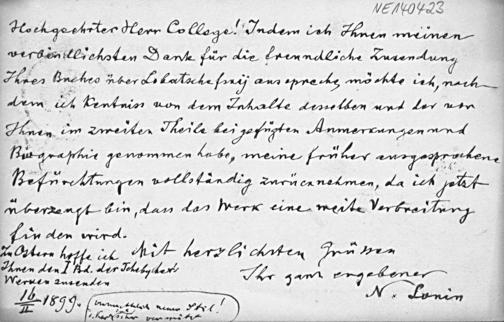 NE140423
Hochgeehrter Herr College! Indem ich Ihnen meinen
verbindlichsten Dank für die freundliche Zusendung
Ihres Buches über Lobatschefskij ausspreche, möchte ich, nach-
dem ich Kentniss von dem Inhalte desselben und der von
Ihnen im zweiten Theile beigefügten Anmerkungen und
Biographie genommen habe, meine früher ausgesprochene
Befürchtungen vollständig zurücknehmen, da ich jetzt
überzeugt bin, dass das Werk eine weite Verbreitung
finden wird.
Mit herzlichsten Grüssen
Ihr ganz ergebener
N.
Zu Ostern hoffe ich
Ihnen den I Bd. der
Werke zusenden
16/II 1899. neuer Stil!